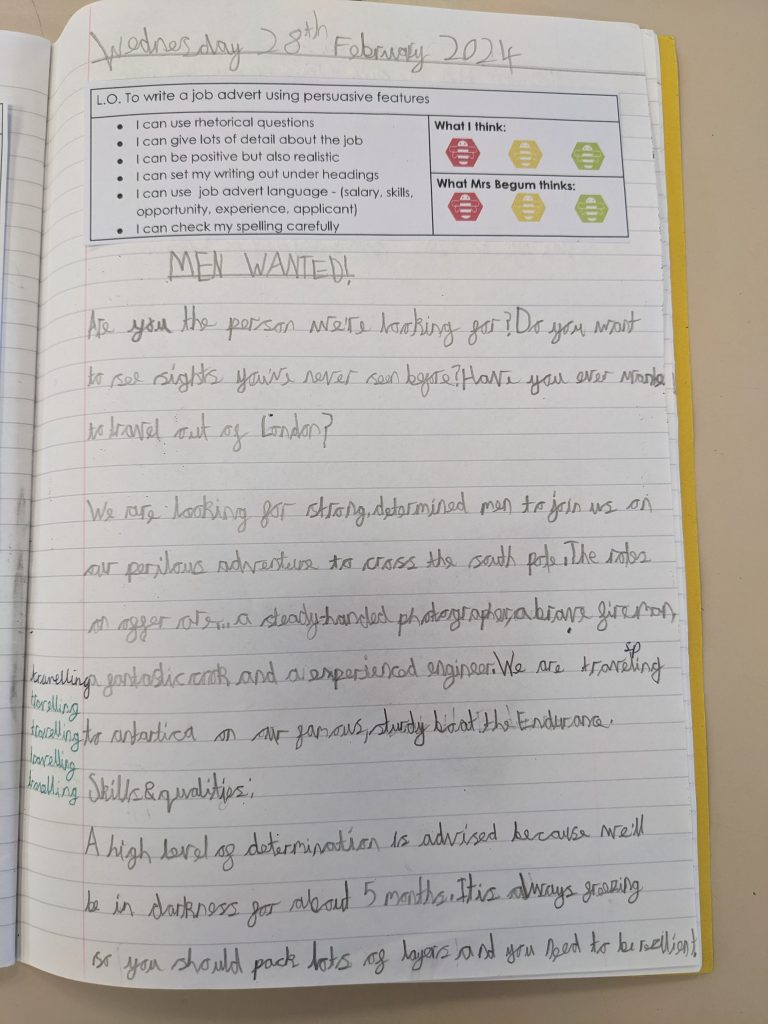 Wednesday 28th February 2024
L.O. To write a job advert using persuasive features
• I can use rhetorical questions
• I can give lots of detail about the job
• I can be positive but also realistic
• I can set my writing out under headings
• I can use job advert language - (salary, skills,
opportunity, experience, applicant)
• I can check my spelling carefully
What I think:
What Mrs Begum thinks:
MEN WANTED!
Are you the person we're looking for? Do you want
to see sights you've never seen before? Have you ever
to travel out of London?
We are looking for strong, determined men to join us on
our perilous adventure to cross the south pole. The roles
on offer are... a steady-handed photographer, a brave fireman,
a fantastic cook and a experienced engineer. We are traveling
sp
travelling
travelling
travelling
travelling
travelling
to antartica on our famous, sturdy boat the Endurance.
Skills & qualities:
A high level of determination is advised because we'll
be in darkness for about 5 months. It is always freezing
so you should pack lots of layers and you need to be